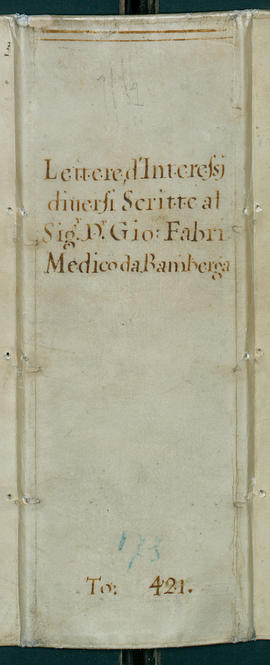 Lettere, d'Interessi
diuersi Scritte al
Sig.r D.r Gio: Fabri
Medico da Bamberga
173
To: 421.